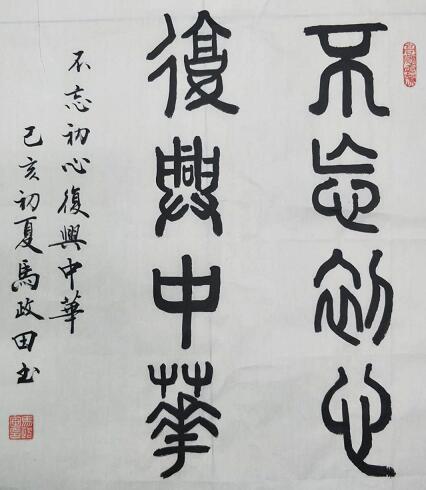 不忘初心
復興中華
不忘初心復興中華
己亥初夏馬政田書